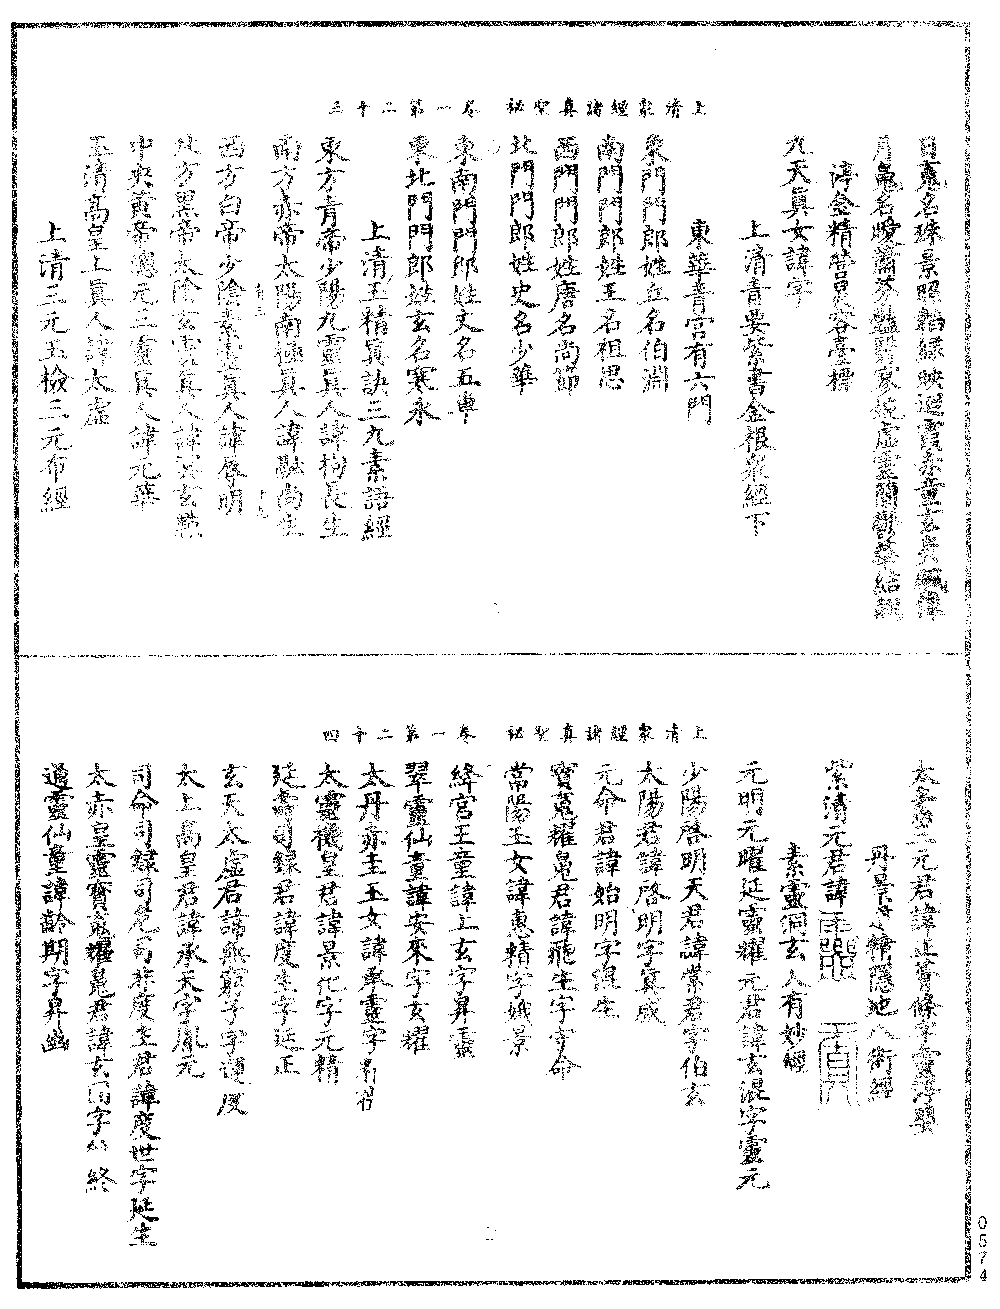 上清衆經諸真聖秘　卷一第二十三
日魂名珠景照韜綠映迴霞赤童玄炎飈諱
月魄名曖蕭芬豔翳寥婉虛靈蘭鬱華結翹
淳金精皓昱容臺標
九天真女諱字
上清青要紫書金根衆經下
東華青宮有六門
東門門郎姓丘名伯淵
南門門郎姓王名祖思
西門門郎姓唐名尚節
北門門郎姓史名少華
東南門門郎姓文名五
東北門門郎姓玄名寒永
上清玉精真訣三九素語經
東方青帝少陽九靈真人諱拘長生
南方赤帝太陽南極真人諱融尚生
西方白帝少陰素靈真人諱辱明
北方黑帝太陰玄靈真人諱冥玄
中央黃帝總元三靈真人諱元華
玉清高皇上真人諱太虛
上清三元玉檢三元布經
上清衆經諸真聖秘　卷一第二十四
太素三元君諱正薈條字雲淳嬰
丹景道精隱地八術經
紫清元君諱
素靈洞玄大有妙經
元明元曜延靈耀元君諱玄混字靈元
少陽啓明天君諱常君字伯玄
太陽君諱啓明字真成
元命君諱始明字得生
寶魂耀魄君諱飛生字守命
常陽玉女諱惠精字娥景
絳宮王童諱上玄字昇靈
翠靈仙童諱安來字玄耀
太丹赤圭玉女諱承靈字
太靈機皇君諱景化字元精
延壽司錄君諱度玄字延正
玄天太虛君諱無窮字字運度
太上高皇君諱承天字胤元
司命司錄司危司非度生君諱度世字延生
太赤皇靈寶魂耀魄君諱玄字終
通靈仙童諱齡期字昇幽
0574